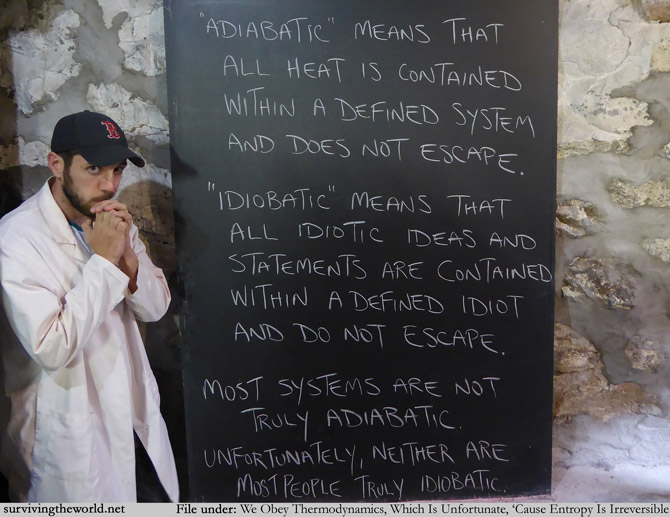 "ADIABATIC" MEANS THAT
ALL HEAT IS CONTAINED
WITHIN A DEFINED SYSTEM
AND DOES NOT ESCAPE.
"IDIOBATIC" MEANS THAT
ALL IDIOTIC IDEAS AND
STATEMENTS ARE CONTAINED
WITHIN A DEFINED IDIOT
AND DO NOT ESCAPE.
MOST SYSTEMS ARE NOT
TRULY ADIABATIC.
UNFORTUNATELY, NEITHER ARE
MOST PEOPLE TRULY IDIOBATIC.
B
survivingtheworld.net File under: We Obey Thermodynamics, Which Is Unfortunate, ‘Cause Entropy Is Irreversible